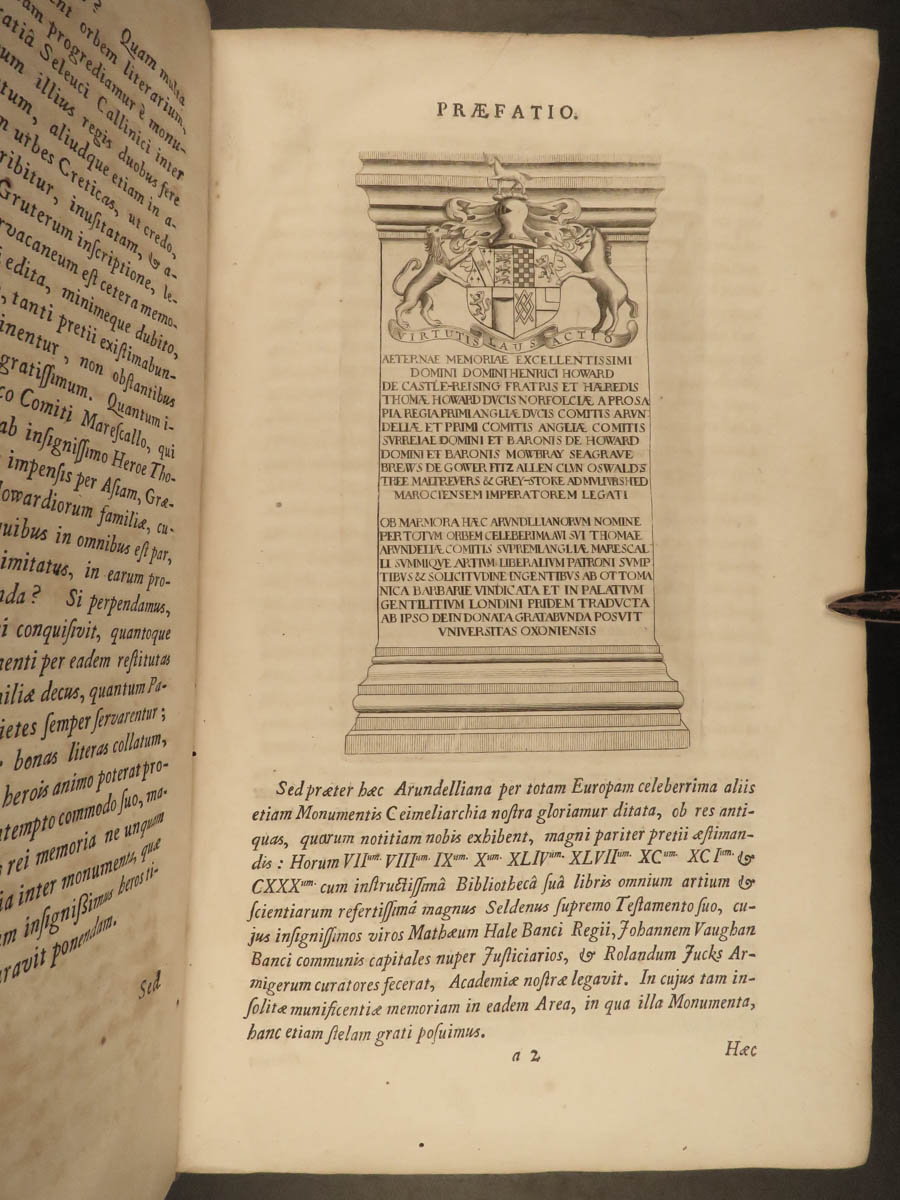 ent orbem literarium,
? Quam multa
am progrediamur è monu-
ratiâ Seleuci Callinici inter
um illius regis duobus fere
tum, aliudque etiam in a-
n urbes Creticas, ut credo,
ribitur, inusitatam, & a-
Gruterum inscriptione, le-
rvacaneum est cetera memo-
i edita, minimeque dubito,
, tanti pretii existimabun-
inentur, non obstantibus
gratissimum. Quantum i-
co Comiti Marescallo, qui
ab insignissimo Heroe Tho-
impensis per Asiam, Græ-
Howardiorum familiæ, cu-
quibus in omnibus est par,
imitatus, in earum pro-
nda? Si perpendamus,
i conquisivit, quantoque
menti per eadem restitutas
miliæ decus, quantum Pa-
ietes semper servarentur;
bonas literas collatum,
herois animo poterat pro-
ntempto commodo suo, ma-
rei memoria ne unquam
ia inter monumenta, quæ
am insignissimus heros ti-
ravit ponendam.
Sed
PRÆFATIO.
VIRTUTIS LAUS ACTIO
AETERNAE MEMORIAE EXCELLENTISSIMI
DOMINI DOMINI HENRICI HOWARD
DE CASTLE-REISING FRATRIS ET HÆREDIS
THOMÆ HOWARD DVCIS NORFOLCIÆ A PROSA
PIA REGIA PRIMI ANGLIÆ DVCIS COMITIS ARVN
DELIÆ ET PRIMI COMITIS ANGLIÆ COMITIS
SVRREIAE DOMINI ET BARONIS DE HOWARD
DOMINI ET BARONIS MOWBRAY SEAGRAVE
BREWS DE GOWER FITZ ALLEN CLVN OSWALDS
TREE MALTREVERS & GREY-STOKE AD MVLIVRSHED
MAROCIENSEM IMPERATOREM LEGATI
OB MARMORA HÆC ARVNDLLIANORVM NOMINE
PER TOTVM ORBEM CELEBERIMA AVI SVI THOMAE
ARVNDELIÆ COMITIS SVPREMI ANGLIÆ MARESCAL
LI SVMMIQVE ARTIVM LIBERALIVM PATRONI SVMP
TIBVS & SOLICITVDINE INGENTIBVS AB OTTOMA
NICA BARBARIE VINDICATA ET IN PALATIVM
GENTILITIVM LONDINI PRIDEM TRADVCTA
AB IPSO DEIN DONATA GRATABVNDA POSVIT
VNIVERSITAS OXONIENSIS
Sed præter hæc Arundelliana per totam Europam celeberrima aliis
etiam Monumentis Ceimeliarchia nostra gloriamur ditata, ob res anti-
quas, quarum notitiam nobis exhibent, magni pariter pretii æstiman-
dis: Horum VIIum. VIIIum. IXum. Xum. XLIVum. XLVIIum. XCum. XCIum. &
CXXXum. cum instructissimâ Bibliothecâ suâ libris omnium artium &
scientiarum refertissimâ magnus Seldenus supremo Testamento suo, cu-
jus insignissimos viros Mathæum Hale Banci Regii, Johannem Vaughan
Banci communis capitales nuper Justiciarios, & Rolandum Jucks Ar-
migerum curatores fecerat, Academiæ nostræ legavit. In cujus tam in-
solitæ munificentiæ memoriam in eadem Area, in qua illa Monumenta,
hanc etiam stelam grati posuimus.
a 2
Hæc